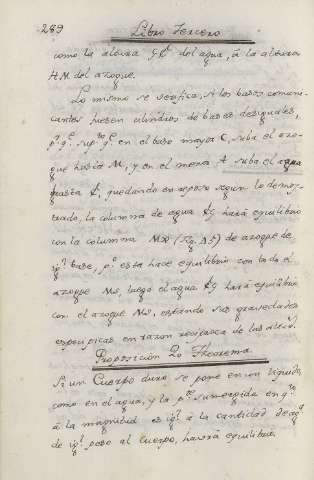 289
Libro Tercero
como la altura gC del agua, â la altura
HM del azogue.
Lo mismo se verifica, si los basos comuni-
cantes fuesen cilindros de bases desiguales,
pq. supto. q. en el baso mayor C, suba el azo-
gue hasta M, y en el menor A suba el agua
hasta C, quedando en reposo segun lo demos-
trado, la columna de agua Cg hará equilibrio
con la columna MX (Fig. 25) de azogue de
igl. base, po. esta hace equilibrio con todo el
azogue Ms, luego el agua Cg hará equilibrio
con el azogue Ms, estando sus gravedades
especificas en razon reciproca de las alturs.
Proposición 20 Theorema
Si un Cuerpo duro se pone en un líquido,
como en el agua, y la pte. sumergida en qto.
â la magnitud es igl. â la cantidad de agua
de igl. peso al cuerpo, havrá equilibrio.